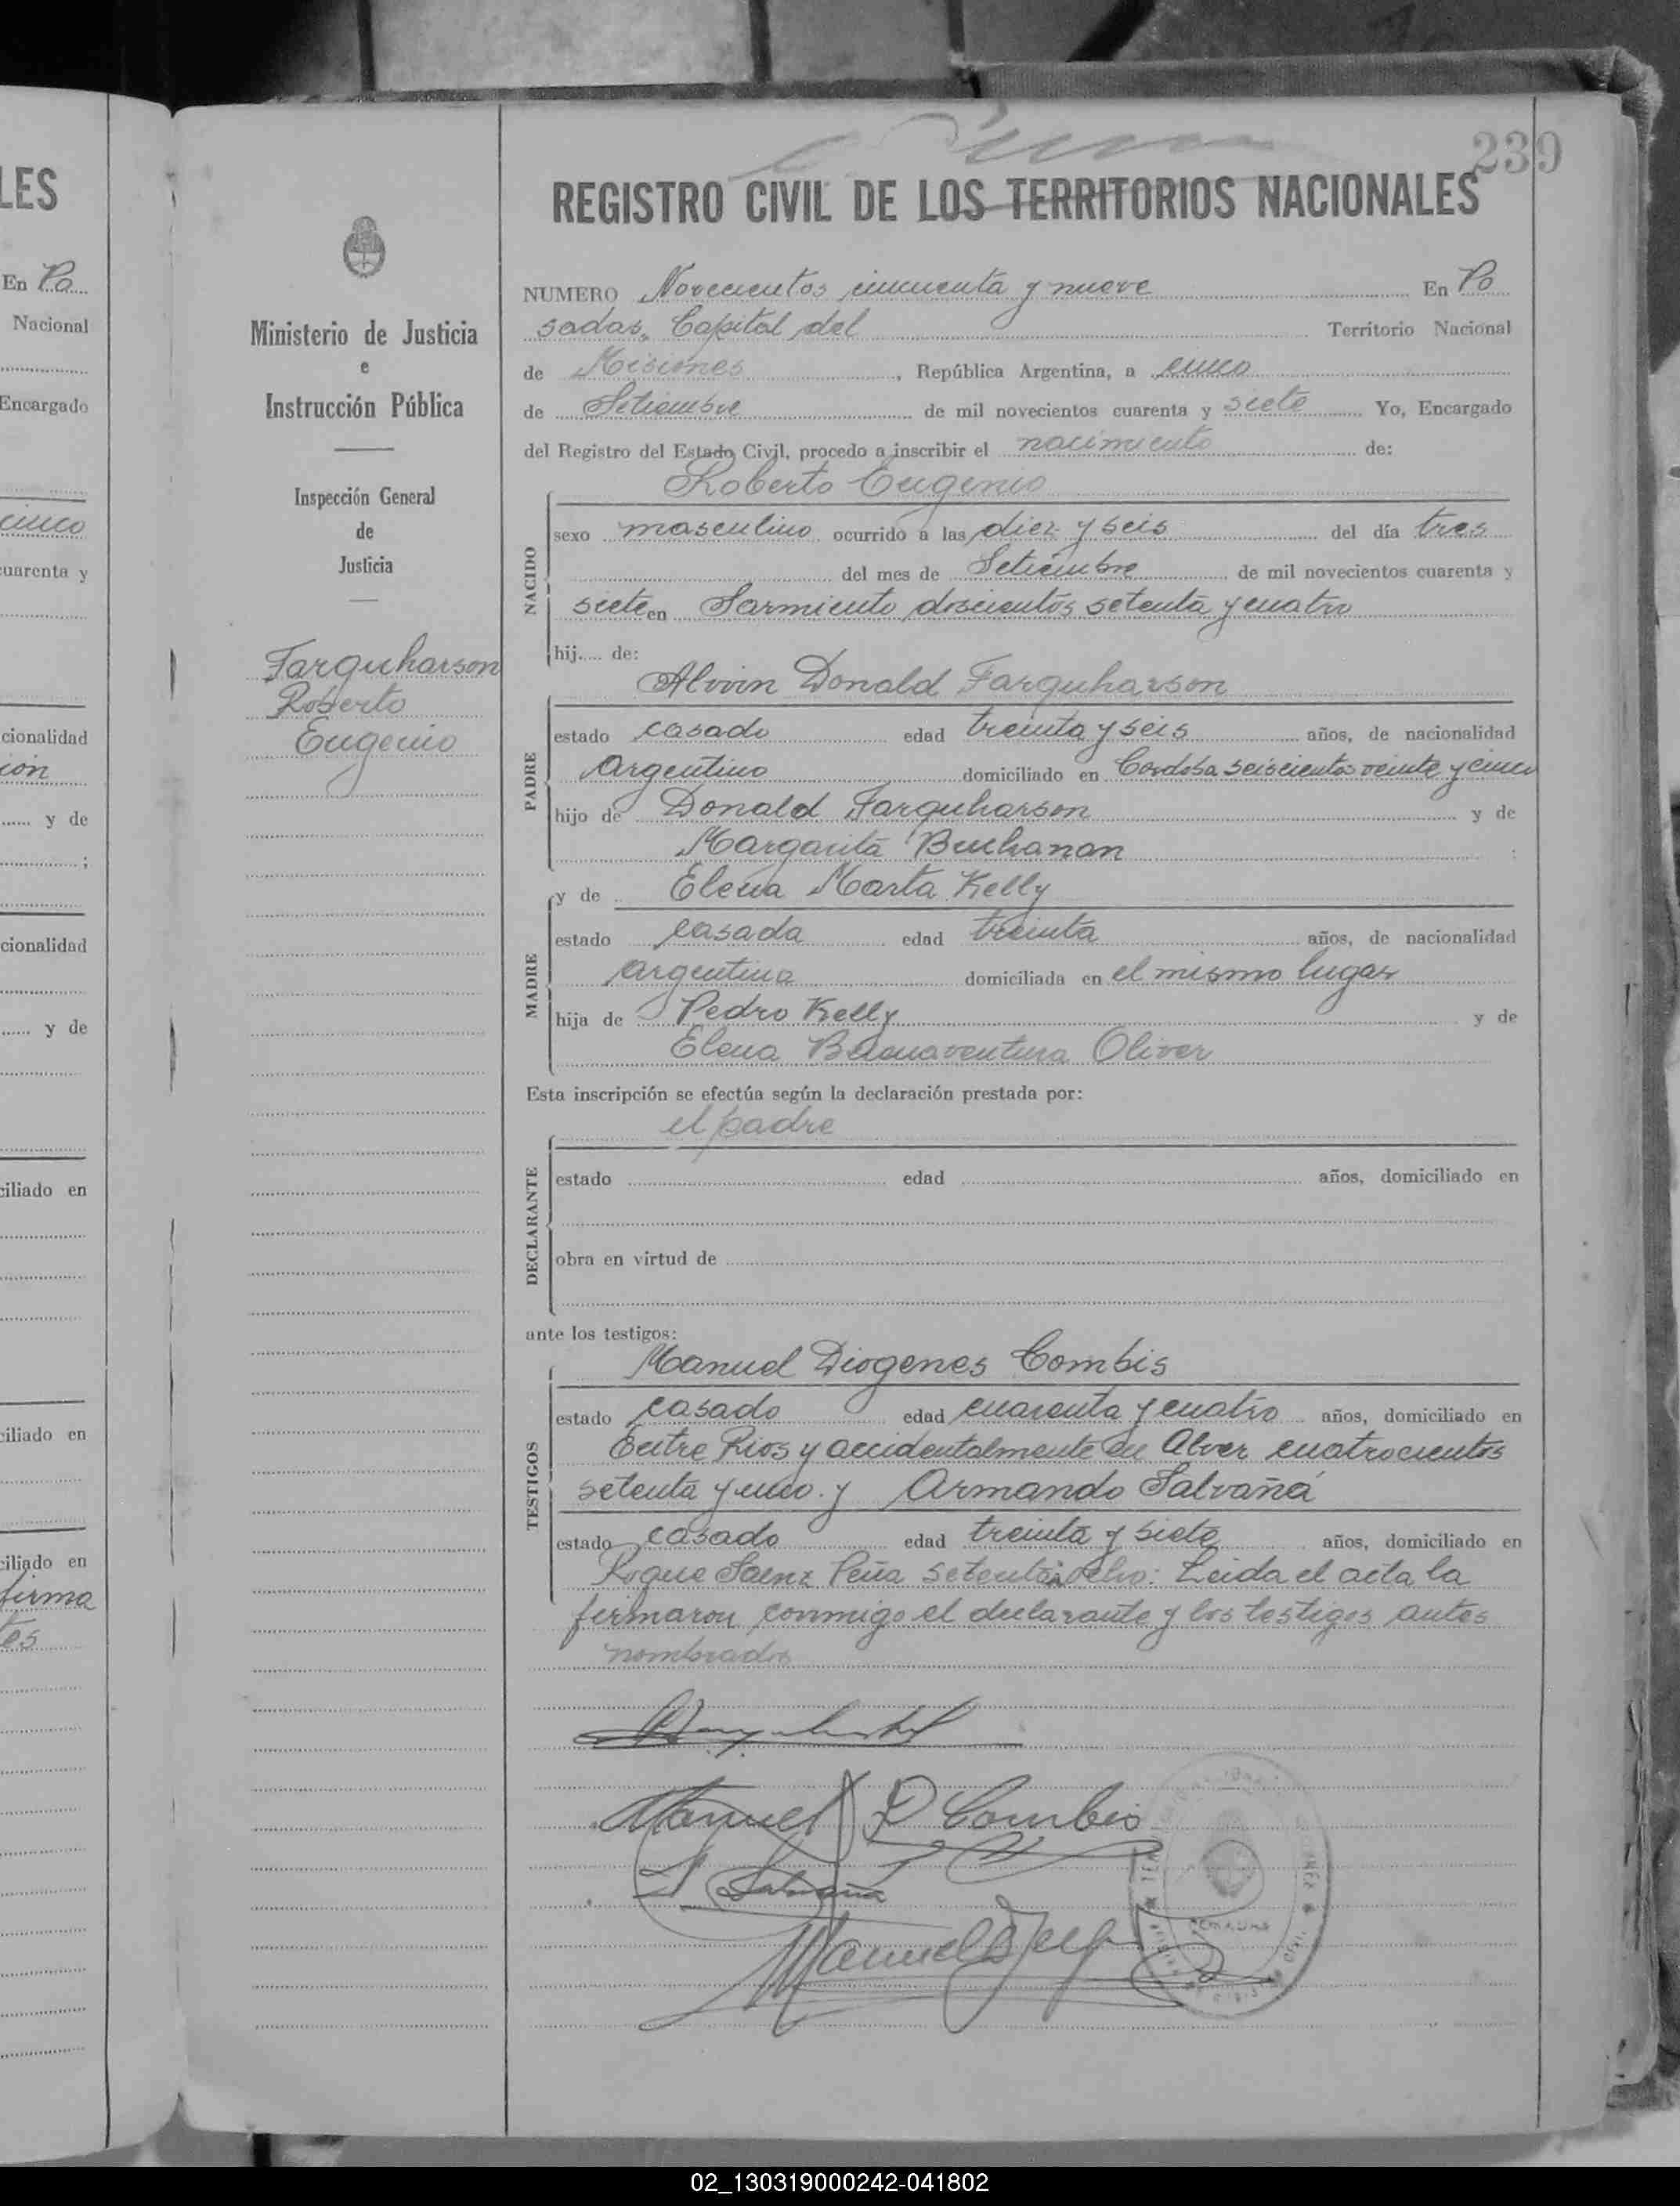 239
REGISTRO CIVIL DE LOS TERRITORIOS NACIONALES
Ministerio de Justicia
e
Instrucción Pública
Inspección General
de
Justicia
Farquharson
Roberto
Eugenio
NUMERO Novecientos cincuenta y nueve En Po
sadas, Capital del Territorio Nacional
de Misiones, República Argentina, a cinco
de Setiembre de mil novecientos cuarenta y siete Yo, Encargado
del Registro del Estado Civil, procedo a inscribir el nacimiento de:
Roberto Eugenio
NACIDO
sexo masculino ocurrido a las diez y seis del día tres
del mes de Setiembre de mil novecientos cuarenta y
siete en Sarmiento doscientos setenta y cuatro
hij.... de:
Alvin Donald Farquharson
PADRE
estado casado edad treinta y seis años, de nacionalidad
Argentino domiciliado en Cordoba seiscientos veinte y cinco
hijo de Donald Farquharson y de
Margarita Buchanan
y de Elena Marta Kelly
MADRE
estado casada edad treinta años, de nacionalidad
argentina domiciliada en el mismo lugar
hija de Pedro Kelly y de
Elena Buenaventura Oliver
Esta inscripción se efectúa según la declaración prestada por:
el padre
DECLARANTE
estado edad años, domiciliado en
obra en virtud de
ante los testigos:
Manuel Diogenes Combis
TESTIGOS
estado casado edad cuarenta y cuatro años, domiciliado en
Entre Rios y accidentalmente en cuatrocientos
setenta y uno. y Armando Salvañá
estado casado edad treinta y siete años, domiciliado en
Roque Saenz Peña setenta ocho: Leida el acta la
firmaron conmigo el declarante y los testigos antes
nombrados
Manuel D Combis
Salvañá
LES
En Po
Nacional
Encargado
cinco
cuarenta y
cionalidad
y de
;
cionalidad
y de
ciliado en
ciliado en
ciliado en
firma
02_130319000242-041802